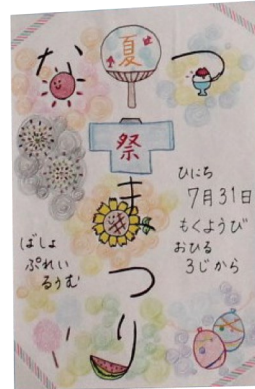 なつ
夏
祭
まつり
ひにち
7月31日
もくようび
おひる
3じから
ばしょ
ぷれい
るうむ